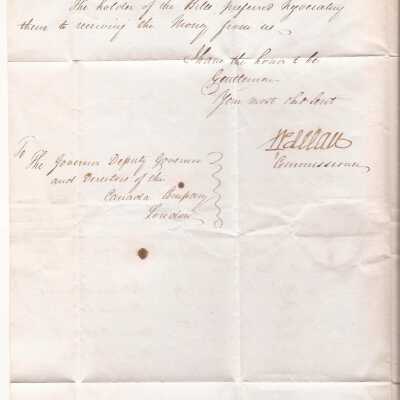 The holder of the Bills prefered hypociating
them to receiving the Money from us
I have the honor to be
Gentlemen
Your most obd Servt
W Allan
Commissioner
To
The Governor Deputy Governor
and Directors of the
Canada Company
London